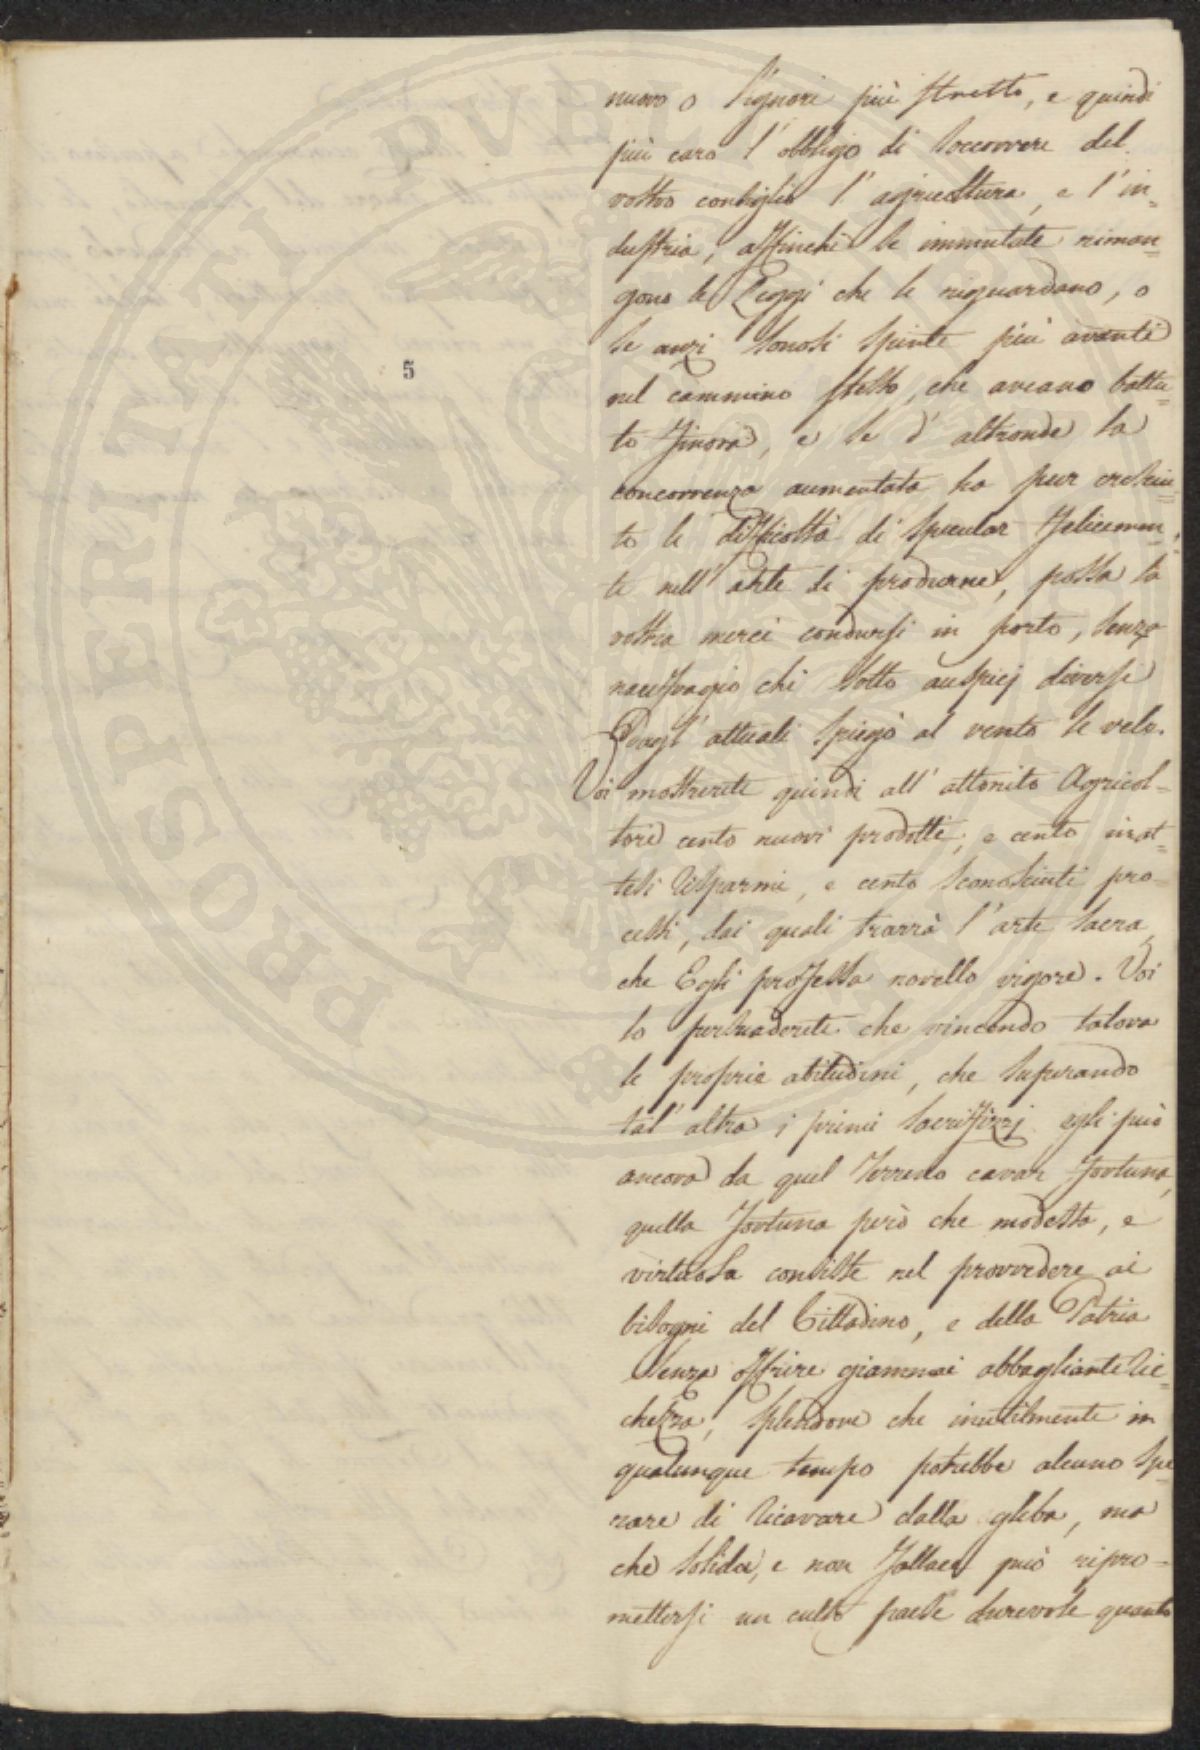 nuovo o Signori più stretto, e quindi
più caro l'obbligo di soccorrere del
vostro consiglio l'agricoltura, e l'in-
dustria, affinchè se immutate riman-
gono le Leggi che le riguardano, o
se anzi sonosi spinte più avanti
nel cammino stesso, che aveano battu-
to finora, e se d'altronde la
concorrenza aumentata ha pur cresciu-
to le difficoltà di specular felicemen-
te nell'arte di produrre, possa la
vostra mercè condursi in porto, senza
naufragio chi sotto auspicj diversi
dagl'attuali spiegò al vento le vele.
Voi mostrerete quindi all'attonito Agricol-
tore cento nuovi prodotti, e cento inat-
tesi risparmi, e cento sconosciuti pro-
cessi, dai quali trarrà l'arte sacra,
che Egli professa novello vigore. Voi
lo persuaderete che vincendo talora
le proprie abitudini, che superando
tal'altra i primi sacrifizzj egli può
ancora da quel terreno cavar fortuna,
quella fortuna però che modesta, e
virtuosa consiste nel provvedere ai
bisogni del Cittadino, e della Patria
senza offrire giammai abbagliante ric-
chezza, splendore che inutilmente in
qualunque tempo potrebbe alcuno spe-
rare di ricavare dalla gleba, ma
che solida, e non fallace può ripro-
mettersi un culto paese durevole quanto
5
PROSPERITATI PVBL